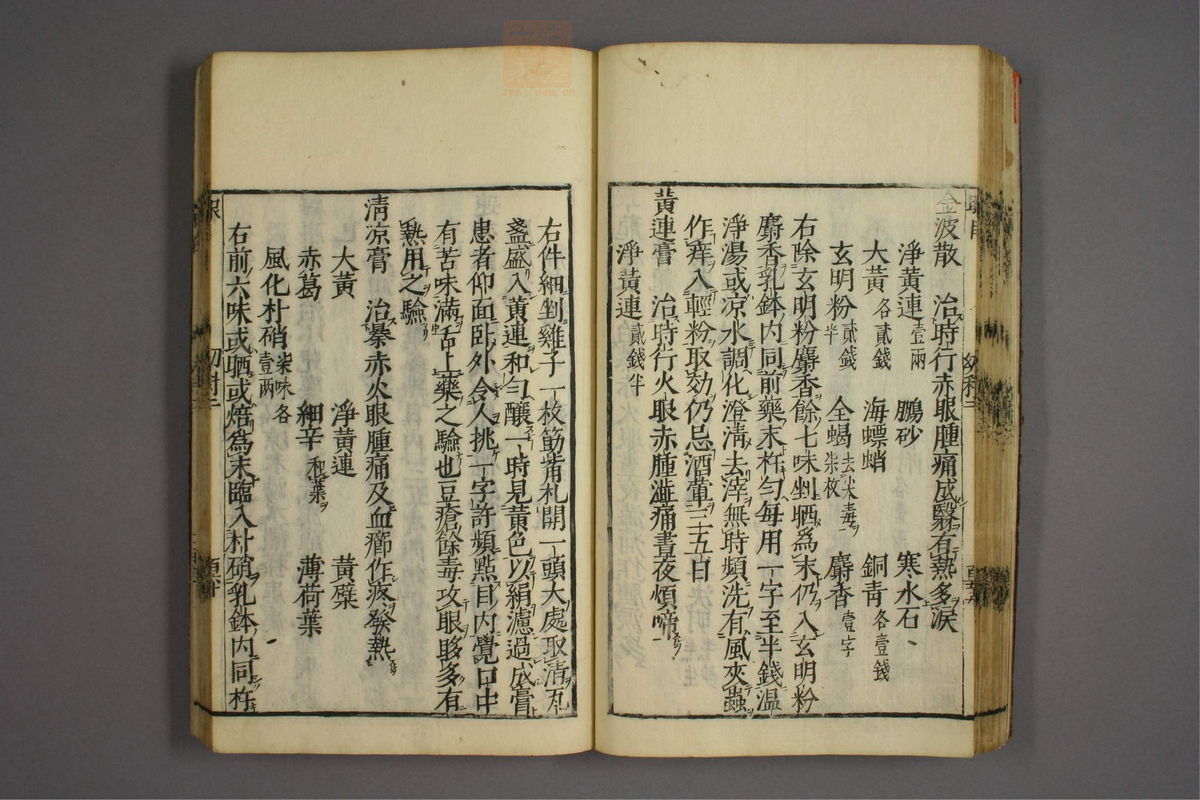 金波散　治時行赤眼腫痛成翳有熱多淚
淨黃連壹兩　鵬砂　寒水石
大黃各貳錢　海螵蛸　銅青各壹錢
玄明粉貳錢半　全蝎去尖毒二柒枚　麝香壹字
右除玄明粉麝香餘七味剉晒為末仍入玄明粉
麝香乳鉢內同前藥末杵勻每用一字至半錢溫
淨湯或凉水調化澄清去滓無時頻洗有風夾蟲
作痒入輕粉取効仍忌酒葷三五日
黃連膏　治時行火眼赤腫澁痛晝夜煩啼
淨黃連貳錢半
右件細剉雞子一枚筋觜札開一頭大處取清瓦
盞盛入黃連和勻釀一時見黃色以絹濾過成膏
患者仰面臥外令人挑一字許頻點目內覺口中
有苦味滿舌上藥之驗也豆瘡餘毒攻眼眵多有
熱用之驗
清凉膏　治暴赤火眼腫痛及血癤作疼發熱
大黃　淨黃連　黃檗
赤葛　細辛和葉　薄荷葉
風化朴硝柒味各壹兩
右前六味或晒或焙為末臨入朴硝乳鉢內同杵